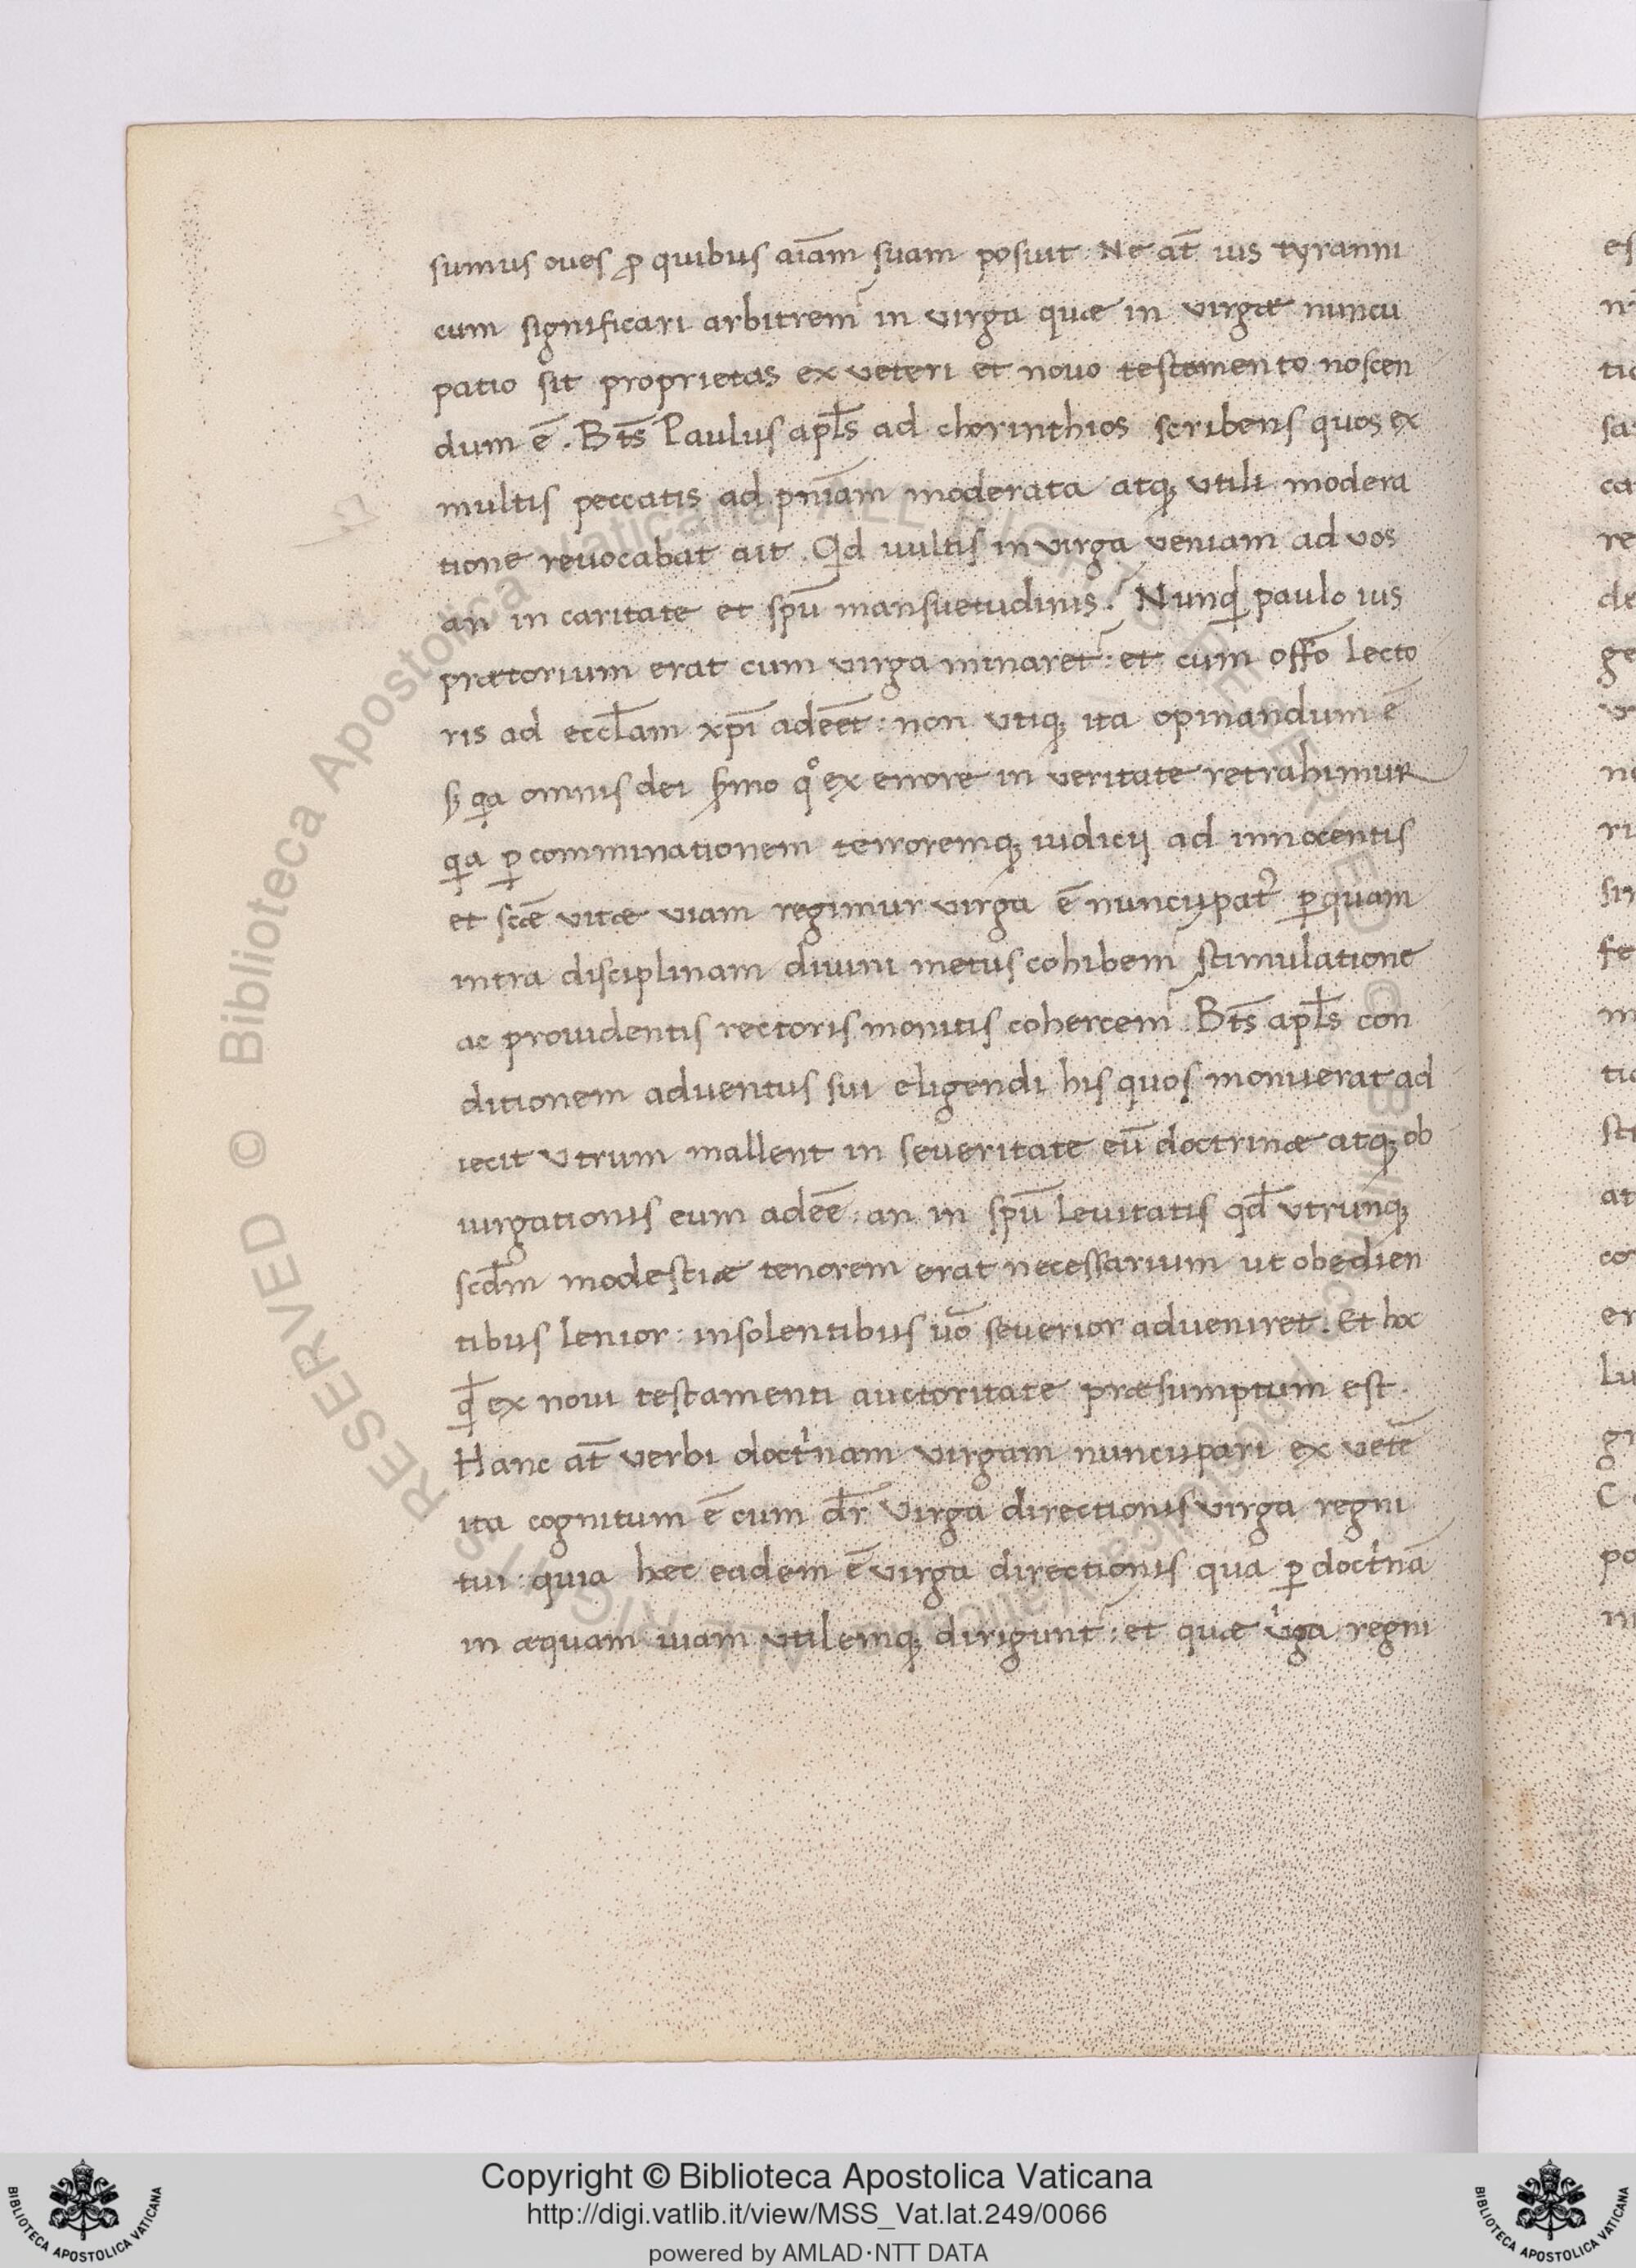 sumus oues ꝓ quibus aīam suam posuit. Ne at̄ ius tyranni
cum significari arbitrem᷑ in virga quæ in virgæ nuncu
patio sit proprietas ex veteri et nouo testamento noscen
dum ē. Bt̄s Paulus apl̄s ad chorinthios scribens quos ex
multis peccatis ad pn̄iam moderata atqꝫ vtili modera
tione reuocabat ait. Qd vultis in virga veniam ad vos
an in caritate et spū mansuetudinis? Nunqd paulo ius
prætorium erat cum virga minaret᷑: et cum offō lecto
ris ad eccl̄am xp̄i adeēt: non vtiqꝫ ita opinandum ē
sꝫ qa omnis dei s̄mo qͦ ex errore in veritate retrahimur
qa ꝑ comminationem terroremqꝫ iudicij ad innocentis
et scǣ vitæ viam regimur virga ē nuncupat᷑ ꝑ quam
intra disciplinam diuini metus cohibem᷑ stimulatione
ac prouidentis rectoris monitis cohercem᷑. Bt̄s apl̄s con
ditionem aduentus sui eligendi his quos monuerat ad
iecit vtrum mallent in seueritate eū doctrinæ atqꝫ ob
iurgationis eum adeē: an in spū leuitatis qd̄ vtrunqꝫ
scd̄m modestiæ tenorem erat necessarium ut obedien
tibus lenior: insolentibus uō seuerior adueniret. Et hoc
qd ex noui testamenti auctoritate præsumptum est.
Hanc at̄ verbi doctⁱnam virgam nuncupari ex vetē
ita cognitum ē cum dr̄ Virga directionis virga regni
tui: quia hæc eadem ē virga directionis qua ꝑ doctⁱnā
in æquam uiam vtilemqꝫ dirigunt᷑: et quæ uⁱga regni
Copyright © Biblioteca Apostolica Vaticana
http://digi.vatlib.it/view/MSS_Vat.lat.249/0066
powered by AMLAD·NTT DATA
BIBLIOTECA APOSTOLICA VATICANA
BIBLIOTECA APOSTOLICA VATICANA